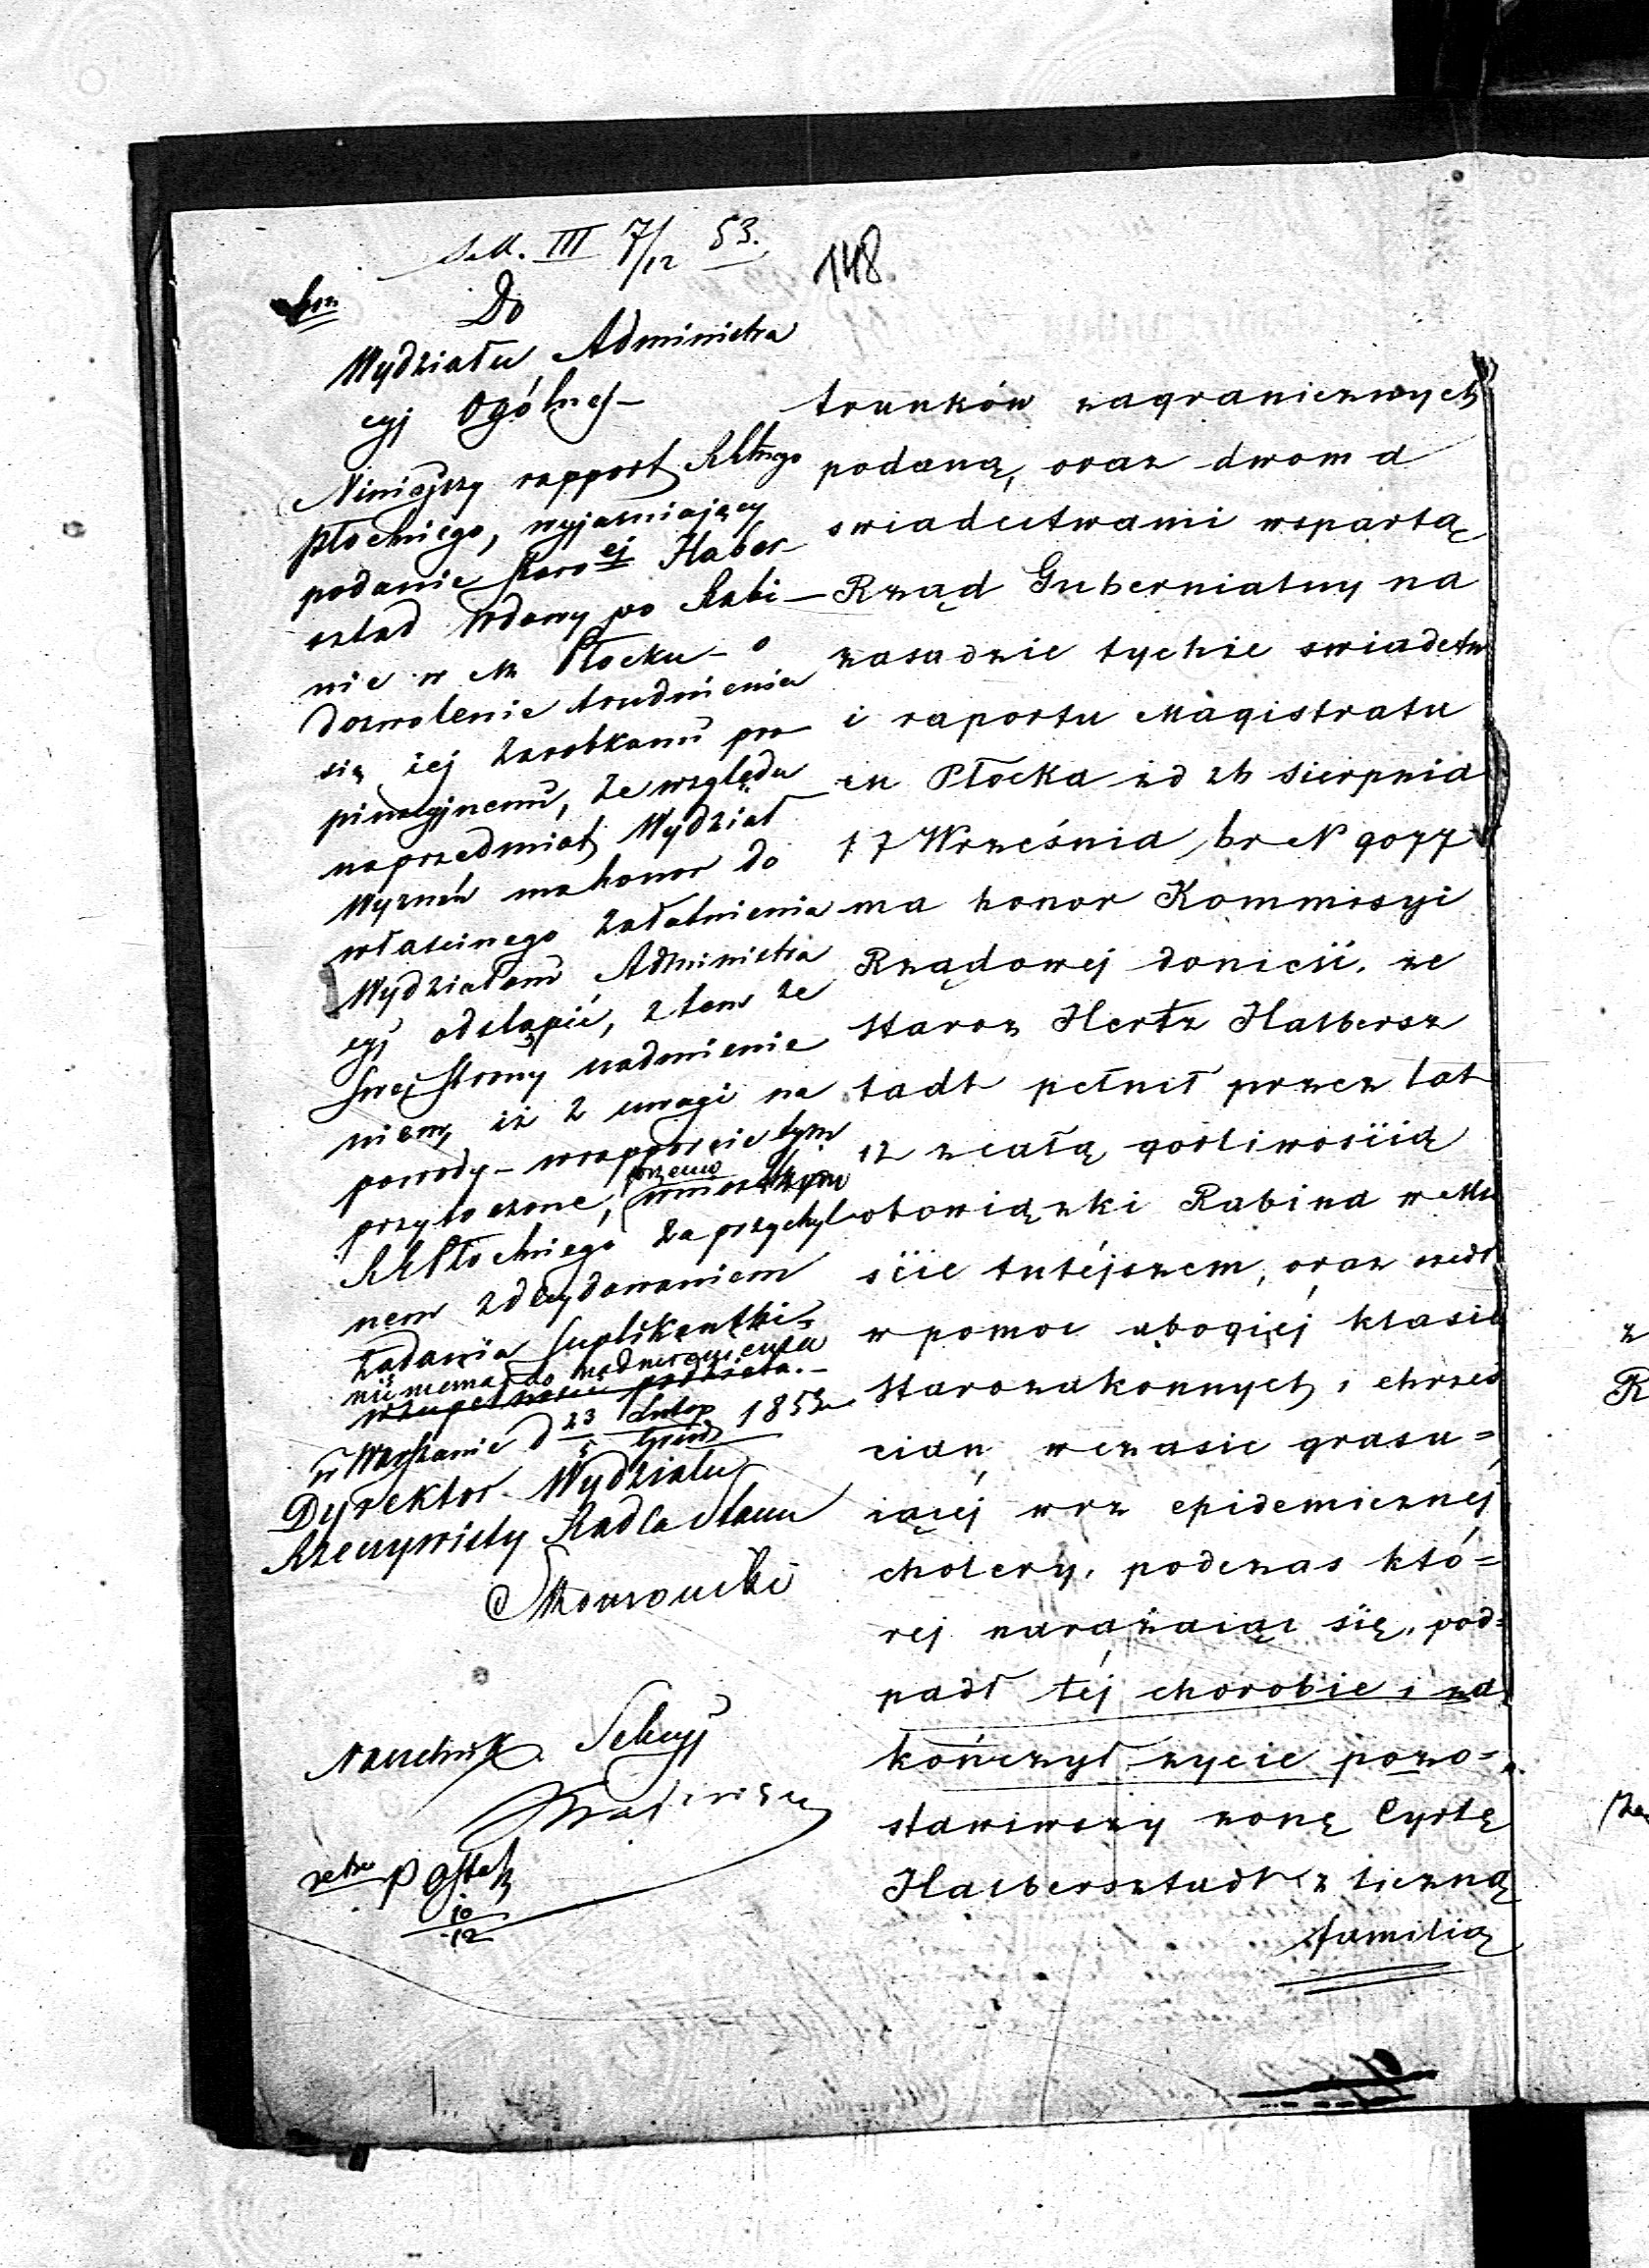 III 7/12 53.
148
Do
Wydziału Administra
cyj Ogólnej –
Niniejszy rapport
Płockiego, wyjasniający
podanie Staroej Haber
sztad Wdowy po Rabi–
nie w M. Płocku – o
dozwolenie trudnienia
się iej zarobkowi pro
pinacyjnemu, ze względu
na przedmiot Wydział
Wyznań ma honor do
właściwego załatwienia
Wydziałowi Administra
cyj odstąpić, z tem ze
swej strony nadmienie
niem, iż z uwagi na
powody – w rapporcie tym
przytoczone,
Płockiego za przychyl
nem zdecydowaniem
żądania suplikantki
nic niema do nadmienienia
w Warszawie d 23/5 Listop/Grud 1853
Dyrektor Wydziału
Rzeczywisty Radca Stanu
Naczelnik Sekcyj
10/12
trunków zagranicznych
podaną, oraz dwoma
swiadectwami wspartą
Rząd Gubernialny na
zasadzie tychże swiadectw
i raportu Magistratu
m Płocka zd 26 Sierpnia
/7 Września br N 9077
ma honor Kommisyi
Rządowej donieść, że
Staroz Hertz Halbersz
tadt pełnił przez lat
12 z całą gorliwością
obowiązki Rabina w Mie
ście tutéjszem, oraz niósł
w pomoc ubogiéj klasie
Starozakonnych i chrześ
cian w czasie grasu=
iącéj w rz epidemicznéj
cholery, podczas któ=
rej narażaiąc się, pod=
padł téj chorobie i za
kończył życie pozo=
stawiwszy żonę Cyrlę
Halbersztadt z liczną
familią